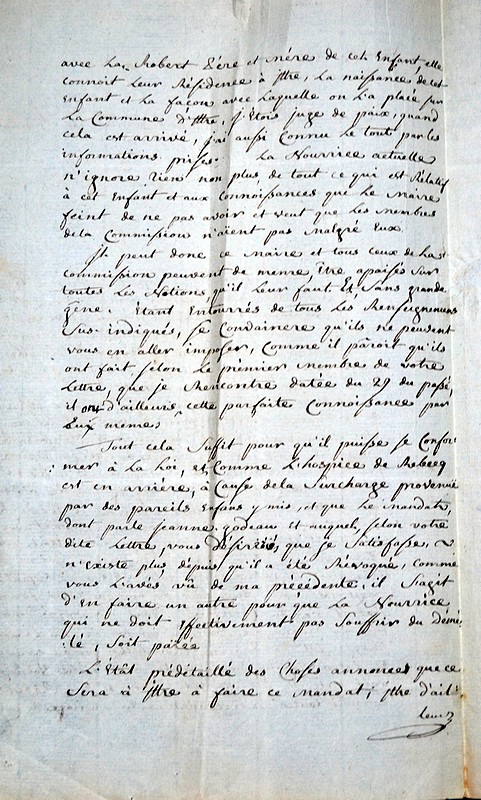 avec La Robert Père et mère de cet Enfant, elle
connoit Leur Résidence à jttre, La naissance de cet
Enfant et La façon avec Laquelle on L'a placé sur
La Commune d'jttre, j'Etois juge de paix, quand
cela est arrivé, j'ai aussi Connu Le tout par les
informations prises. La Nourrice actuelle
n'ignore rien non plus de tout ce qui est Rélatif
à cet Enfant et aux connoissances que Le Maire
feint de ne pas avoir et veut que Les Membres
de La Commission n'aient pas malgré Eux.
Jl peut donc ce Maire et tous ceux de La
commission peuvent de meme Etre apaisés sur
toutes Les Notions, qu'il Leur faut Et sans grande
Gêne. Etant Entourrés de tous Les Renseignemens
sus-indiqués, je Condainere qu'ils ne peuvent
vous en aller imposer, Comme il pâroit qu'ils
ont fait, selon Le premier Membre de votre
Lettre, que je Rencontre datée du 29 du passé,
il ont d'ailleurs cette parfaite Connoissance par
Eux memes
Tout cela Suffit pour qu'il puisse se Confor-
:mer à La Loi, et Comme L'hospice de Rebecq
est en arriére, à Cause de La Surcharge provenue
par des pareils Enfans y mis, et que Le Mandat,
dont parle jeanne godeau et auquel, selon votre
dite Lettre, vous désiriés, que je Satisfasse,
n'Existe plus depuis qu'il a été Révoqué, comme
vous L'avés vû de ma précédente, il S'agit
d'En faire un autre pour que La Nourrice
qui ne doit Effectivement pas Souffrir du démé-
:lé, Soit paiée
L'Etât prédetaillé des Choses annonce que ce
Sera à jttre à faire ce Mandat; jttre d'ail:
leurs